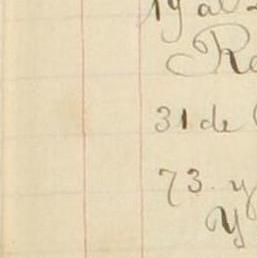 19 al
Re
31 de
73. y
y